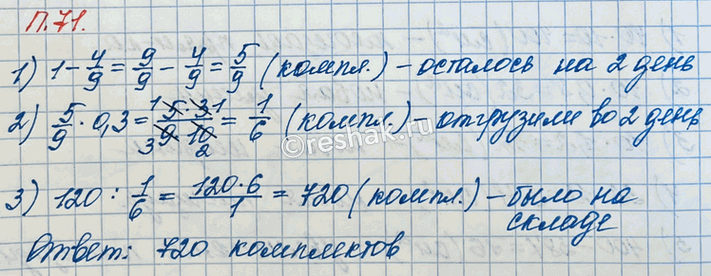 П.71.
1) 1 - 4/9 = 9/9 - 4/9 = 5/9 (компл.) - осталось на 2 день
2) 5/9 · 0,3 = 1 5 · 3 1 / 3 9 · 10 2 = 1/6 (компл.) - отгрузили во 2 день
3) 120 : 1/6 = 120·6/1 = 720 (компл.) - было на
складе
Ответ: 720 комплектов
©reshak.ru